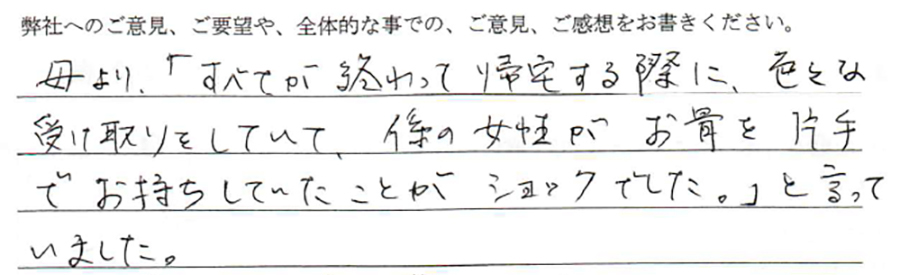 弊社へのご意見、ご要望や、全体的な事での、ご意見、ご感想をお書きください。
母より、「すべてが終わって帰宅する際に、色々な
受け取りをしていて、係の女性がお骨を片手
でお持ちしていたことがショックでした。」と言って
いました。